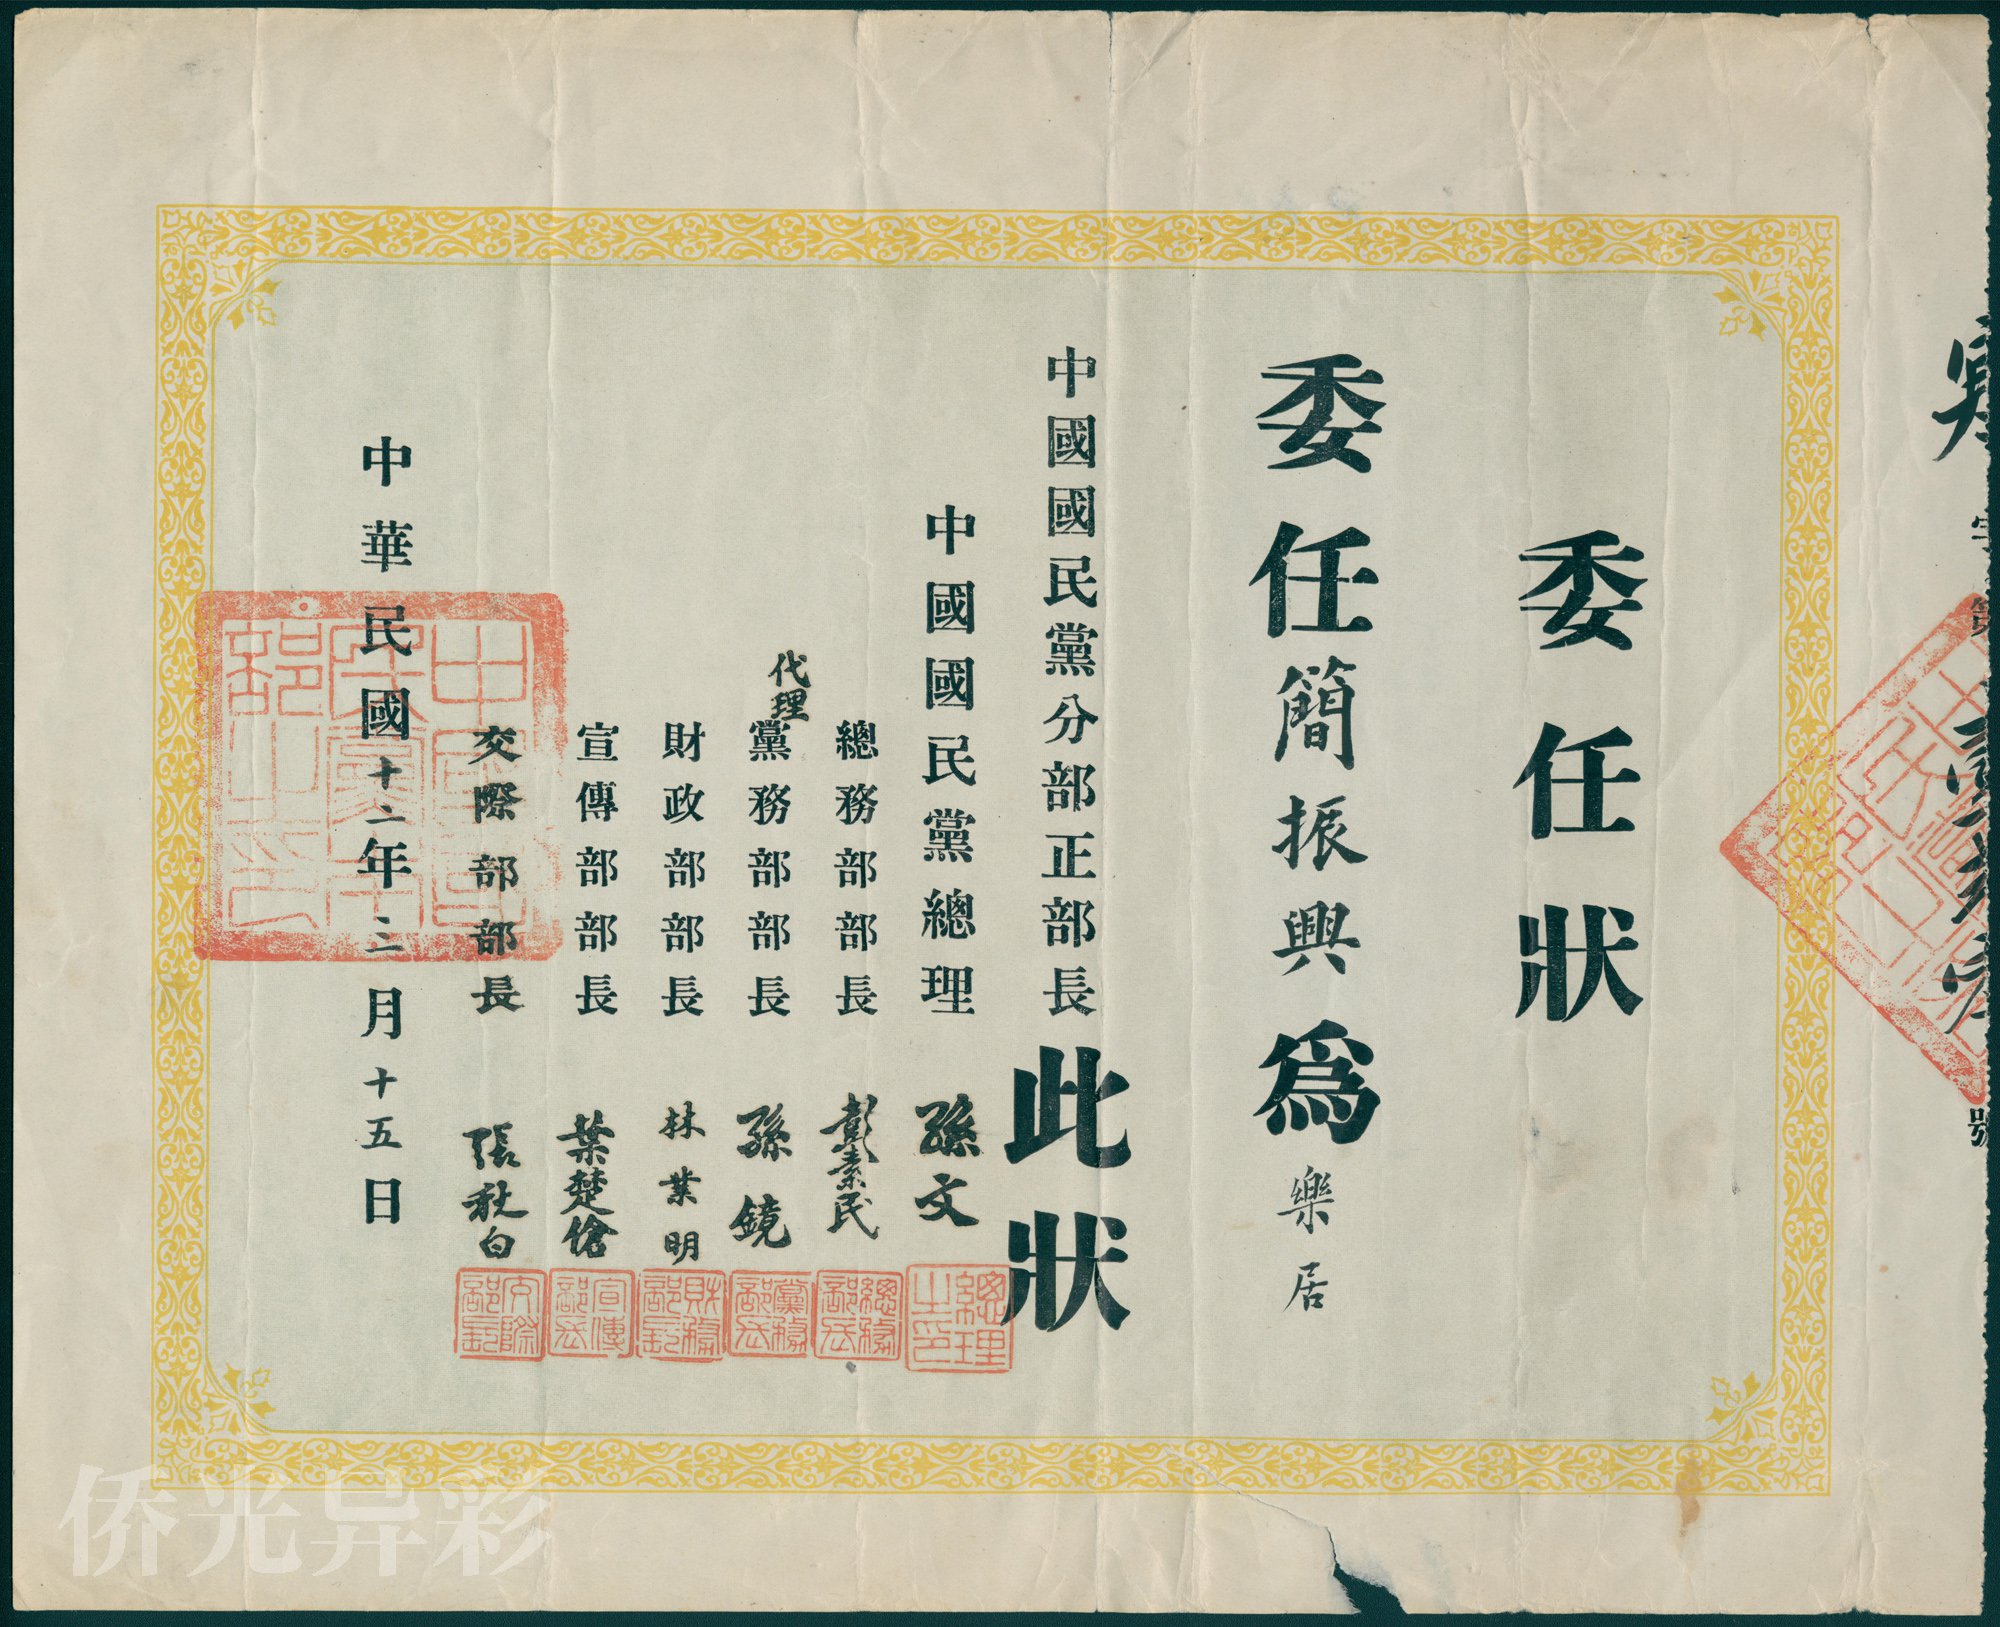 委任狀
委任簡振興為樂居
中國國民黨分部正部長
此狀
中國國民黨總理 孫文
總務部部長 彭素民
代理黨務部部長 孫鏡
財政部部長 林業明
宣傳部部長 葉楚傖
交際部部長 張秋白
中華民國十二年二月十五日
總理之印
總務部長
黨務部長
財務部長
宣傳部長
交際部長
侨光异彩